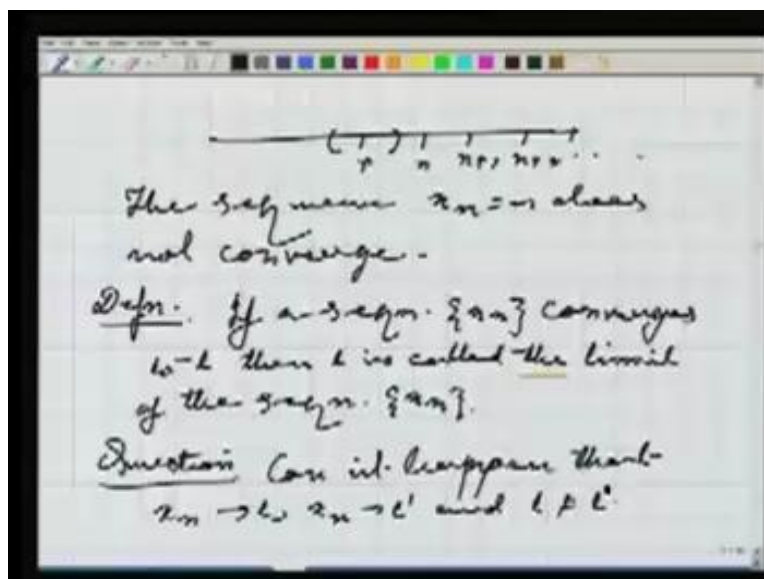 ( ) n n+1 n+2 . . .
The sequence xₙ = n does
not converge.
Defn. If a seqn. {xₙ} converges
to L then L is called the limit
of the seqn. {xₙ}.
Question Can it happen that
xₙ → L, xₙ → L' and L ≠ L'